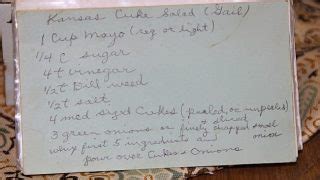 Kansas Cuke Salad (Gail)
1 Cup Mayo (reg or light)
1/4 C sugar
4 t vinegar
1/2 t Dill weed
1/2 t salt
4 med sized Cukes (peeled, or unpeeled)
& sliced
3 green onions or finely chopped small
onion
whip first 5 ingredients and
pour over Cukes & Onions